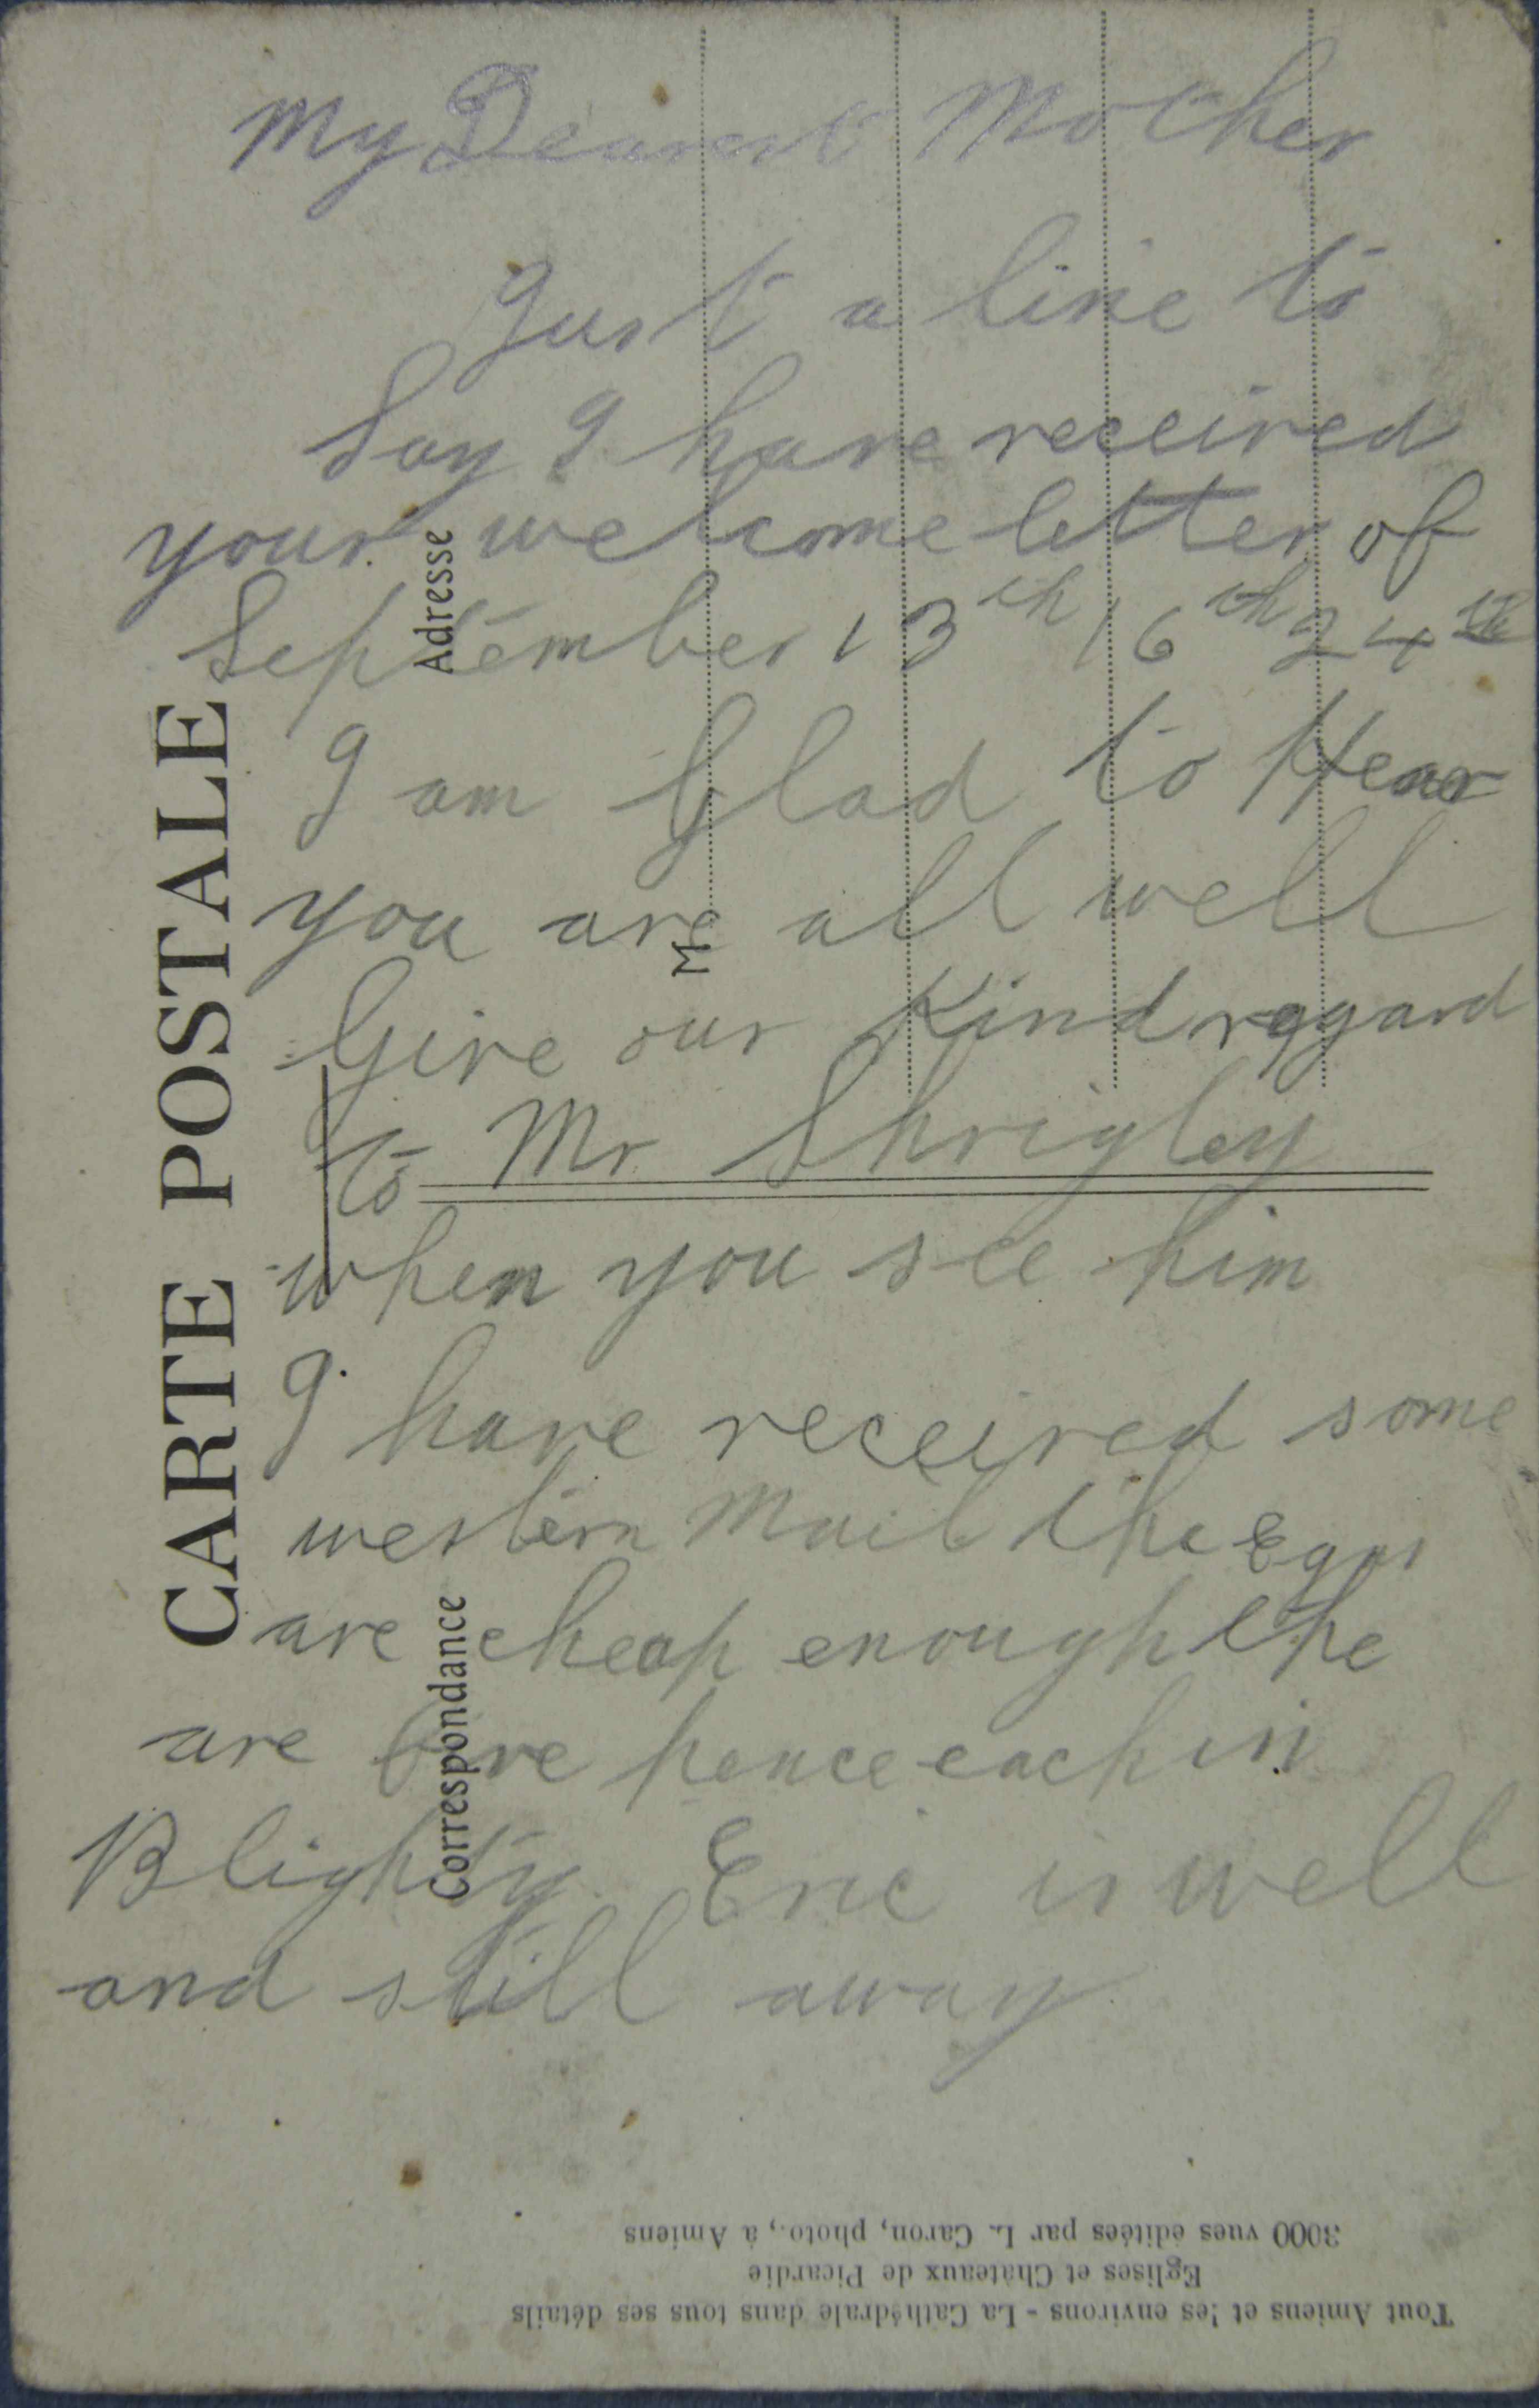 My Dearest Mother
Just a line to
Say I have received
your welcome letter of
September 13th 16th 24th
I am Glad to Hear
you are all well
Give our Kind regard
to Mr Shrigley
when you see him
I have received some
western Mail the Eggs
are cheap enough the
are five pence each in
Blighty Eric is well
and still away
CARTE POSTALE
Correspondance
Adresse
M
Tout Amiens et les environs - La Cathédrale dans tous ses détails
Eglises et Châteaux de Picardie
3000 vues éditées par L. Caron, photo., à Amiens